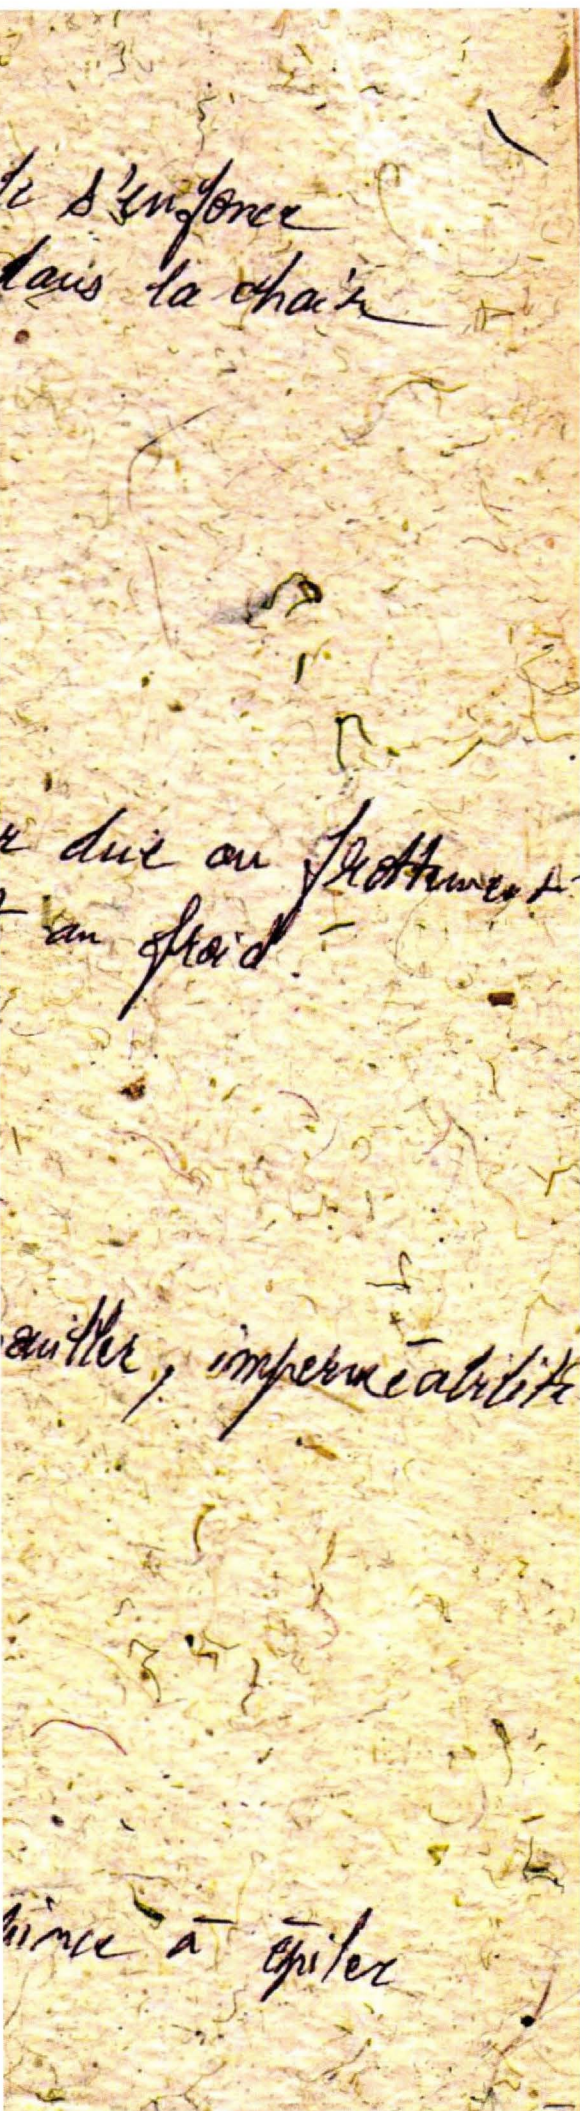 s'enfonce
dans la chair
r due au frottement
au froid.
auiller, imperméabilité
pince à épiler